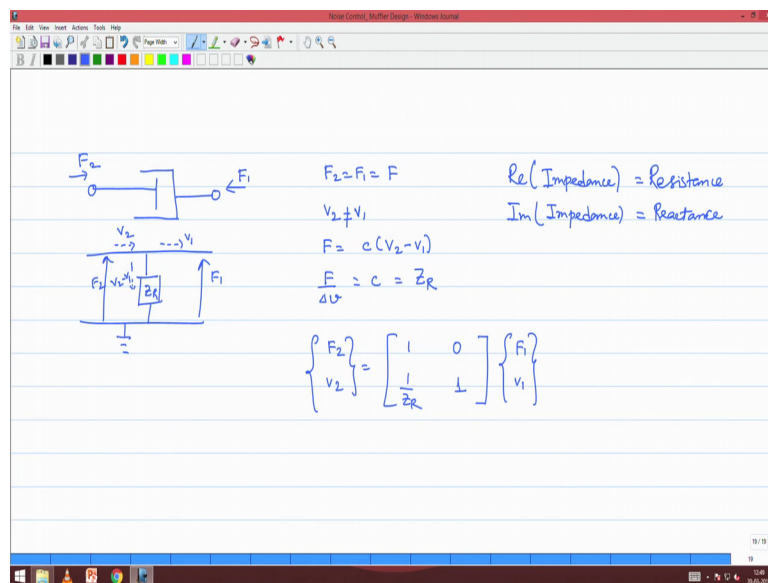 Noise Control_Muffler Design - Windows Journal
File Edit View Insert Actions Tools Help
Page Width
B I
F₂
F₁
V₂
V₁
F₂
V₂-V₁
Z_R
F₁
F₂ = F₁ = F
V₂ ≠ V₁
F = c(V₂-V₁)
F/Δv = c = Z_R
{F₂ V₂} = [1 0 1/Z_R 1] {F₁ V₁}
Re(Impedance) = Resistance
Im(Impedance) = Reactance
19 / 19
19
12:49